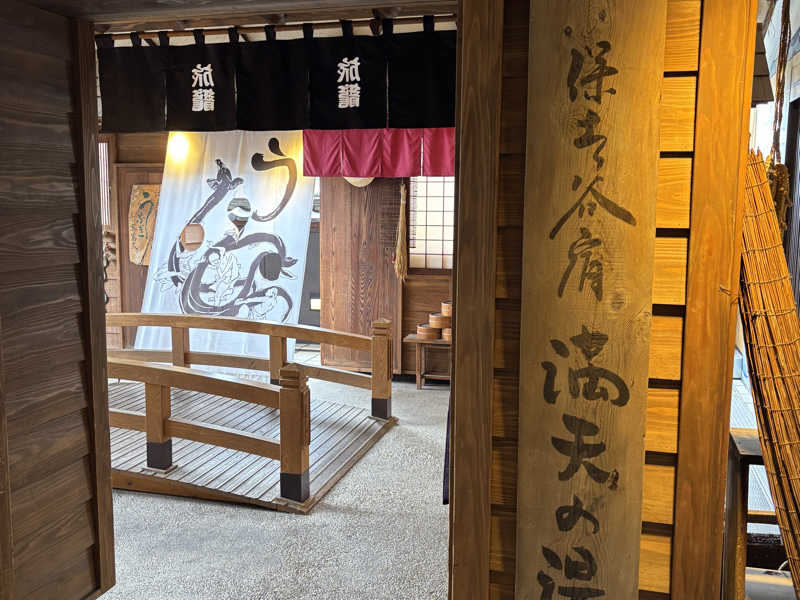 旅籠
旅籠
う
う
保土ヶ谷宿 満天の湯